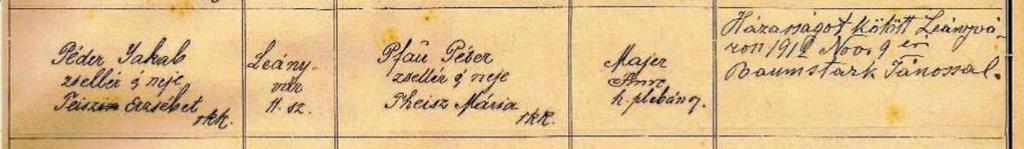 Péder Jakab
zsellér s neje
Teiszin Erzsébet
rkk.
Leány-
vár
11. sz.
Pfaü Péter
zsellér s neje
Theisz Mária
rkk.
Majer
h. plébános.
Házasságot kötött Leányvá-
ron 1912 Nov. 9 én
Baumstark Jánossal.